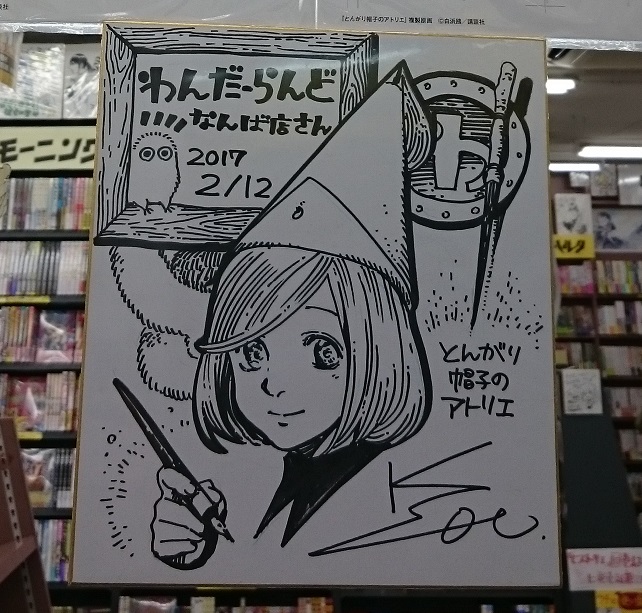 『とんがり帽子のアトリエ』複製原画 ©白浜鴎/講談社
わんだーらんど
なんば店さん
2017
2/12
と
モーニング
とんがり
帽子の
アトリエ